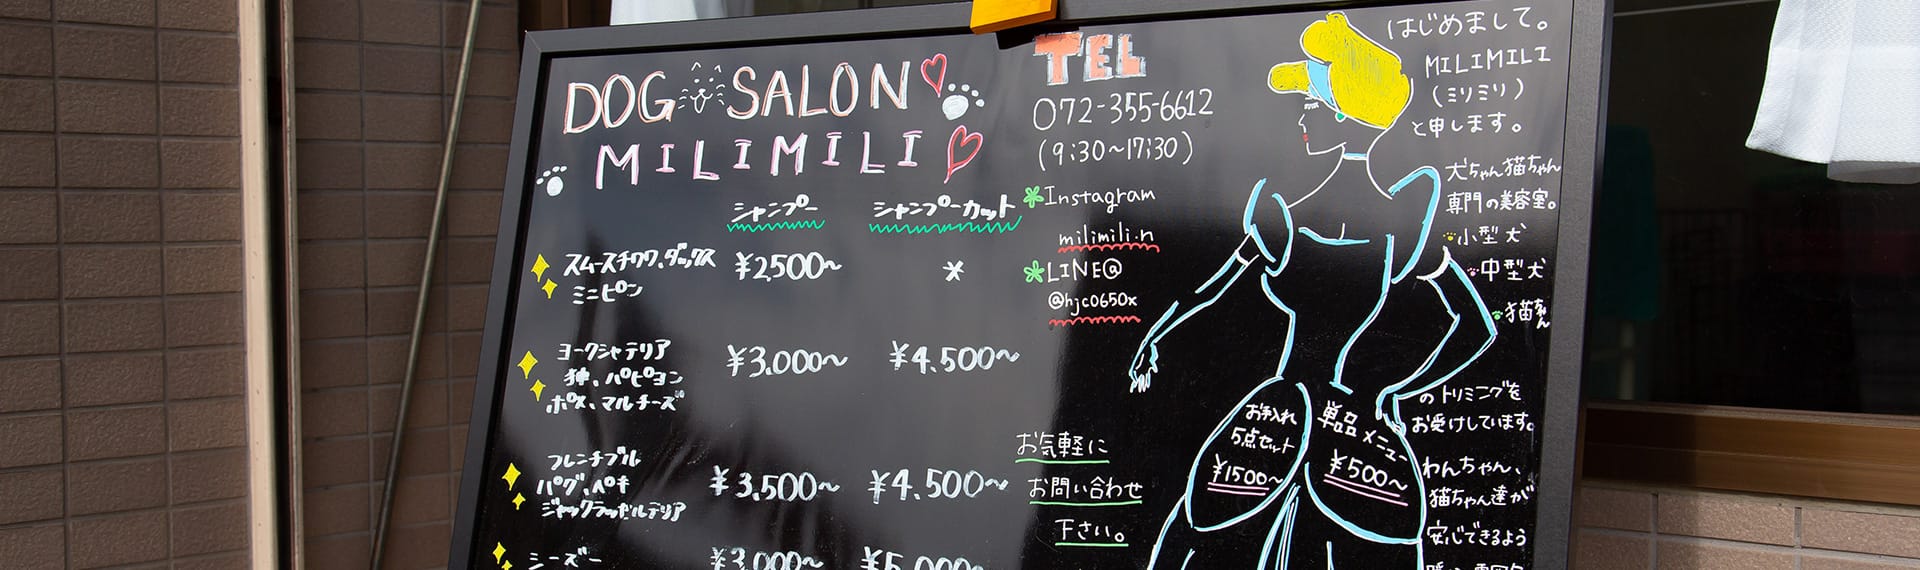 DOG SALON
MILIMILI
シャンプー シャンプーカット
スムースチワワ、ダックス
ミニピン
¥2,500〜
*
ヨークシャテリア
狆、パピヨン
ポメ、マルチーズ
¥3.000〜 ¥4.500〜
フレンチブル
パグ、ペキ
ジャックラッセルテリア
¥3,500〜 ¥4.500〜
シーズー
¥3,000〜 ¥5,000〜
TEL
072-355-6612
(9:30〜17:30)
Instagram
milimili.n
LINE@
@hjc0650x
お気軽に
お問い合わせ
下さい。
お手入れ
5点セット
¥1500〜
単品メニュー
¥500〜
はじめまして。
MILIMILI
(ミリミリ)
と申します。
犬ちゃん猫ちゃん
専門の美容室。
小型犬
中型犬
猫ちゃん
のトリミングを
お受けしています。
わんちゃん、
猫ちゃん達が
安心できるよう